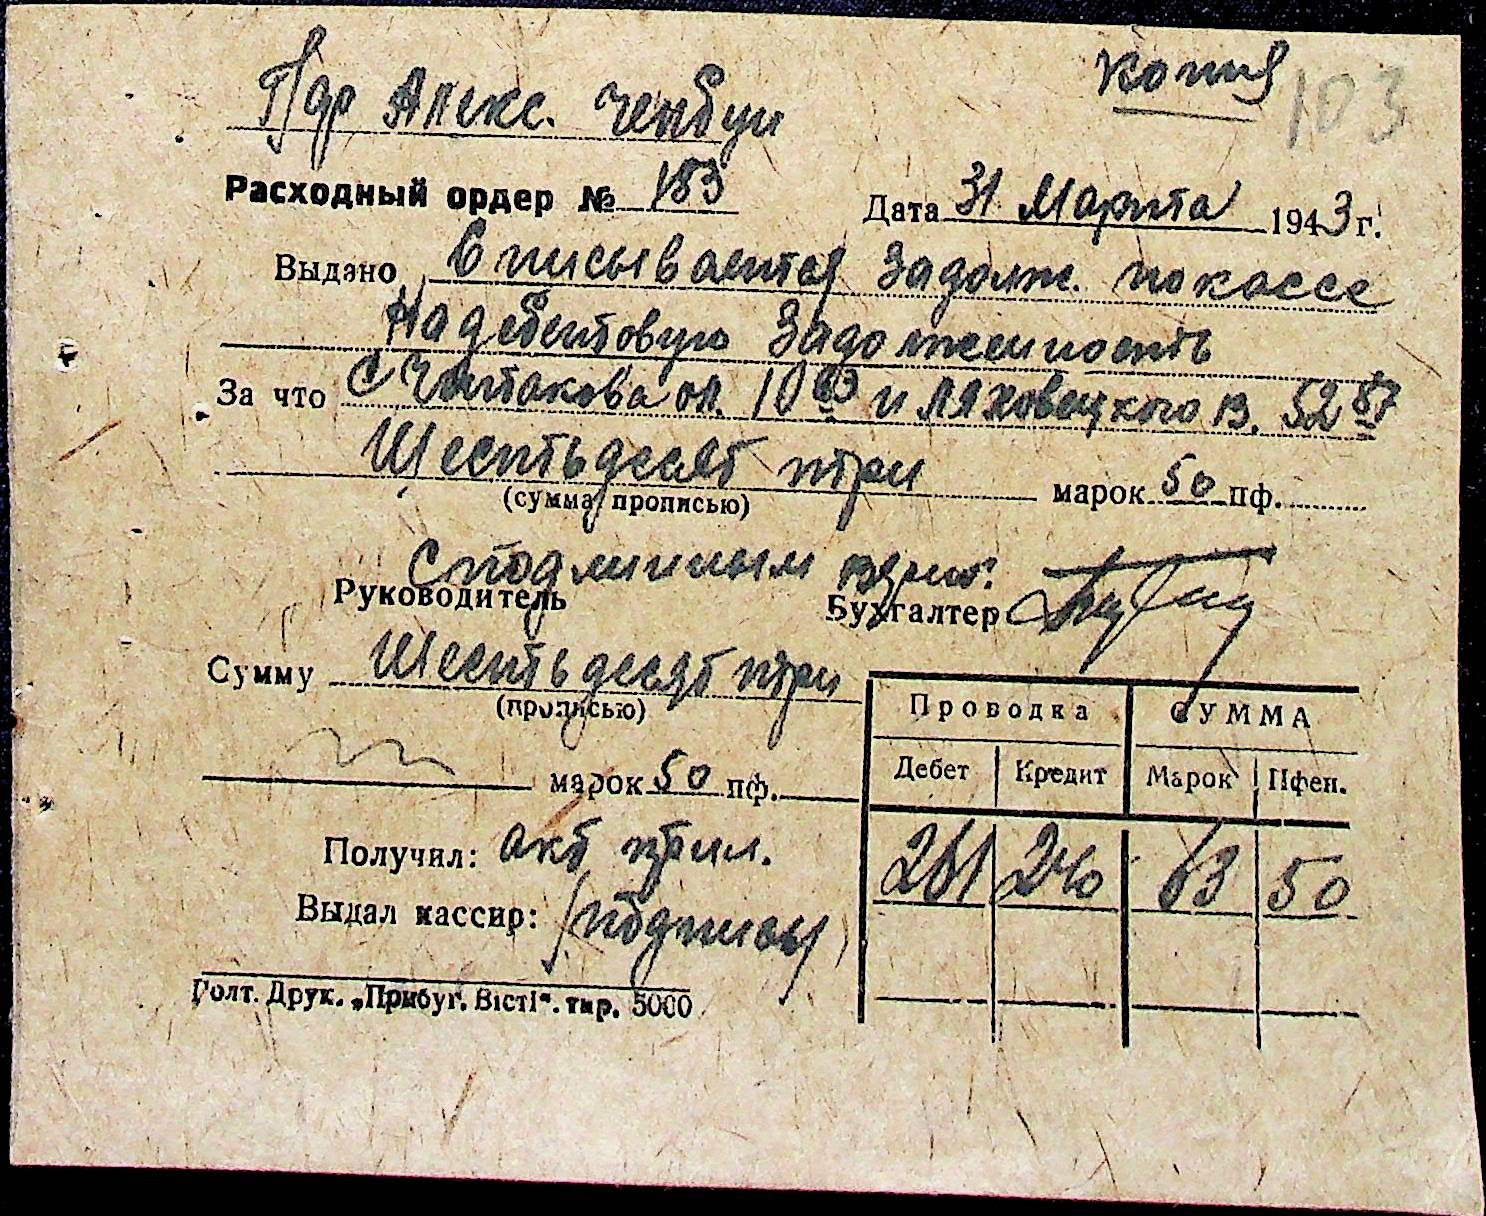 копия
103
Пдр Алекс.
Расходный ордер № 183 Дата 31 Марта 1943 г.
Выдано Списывается задолж. по кассе
На дебетовую Задолженность
За что С Читакова ол. 10 63 и Ляховецкого В. 52 87
Шестьдесят три марок 50 пф.
(сумма прописью)
С подлинным верно:
Руководитель Бухгалтер
Сумму Шестьдесят три
(прописью)
марок 50 пф.
Проводка СУММА
Дебет Кредит Марок Пфен.
261 240 63 50
Получил: акт прил.
Выдал кассир: /подпись/
Голт. Друк. „Прибуг. Вісті“. тир. 5000